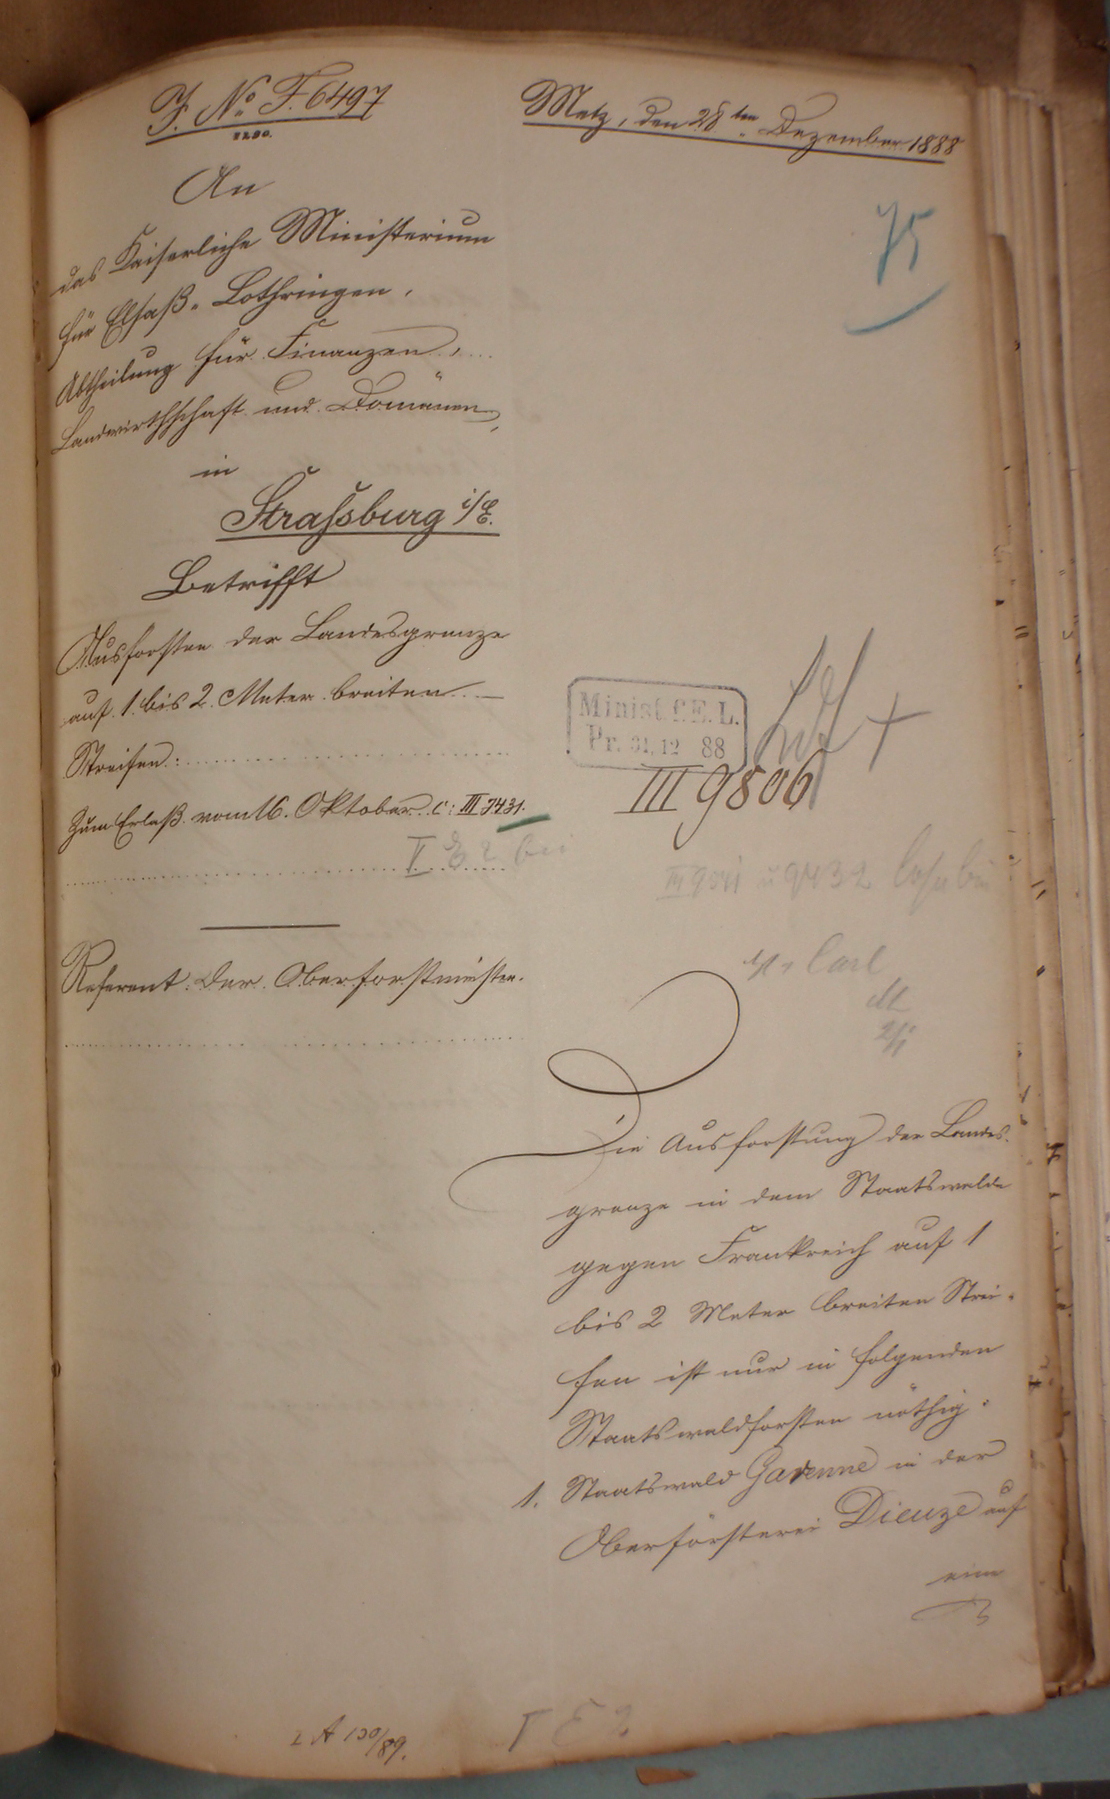 J. No F. 6497
Metz, den 28ten Dezember 1888
75
An
das Kaiserliche Ministerium
für Elsaß-Lothringen,
Abtheilung für Finanzen,
Landwirthschaft und Domänen,
in
Strassburg i/E.
Betrifft
Ausforsten der Landesgrenze
auf 1 bis 2 Meter breiten
Streifen:
Zum Erlaß vom 16. Oktober c: III 7431.
Minist. f. E. L.
Pr. 31.12 88
III 9806
Referent: Der Oberforstmeister.
Die Ausforstung der Landes-
grenze in dem Staatswalde
gegen Frankreich auf 1
bis 2 Meter breiten Strei-
fen ist nur in folgenden
Staatswaldforsten nöthig.
1. Staatswald Garenne in der
Oberförsterei Dieuze auf
eine
I A 130/89.
I E 2